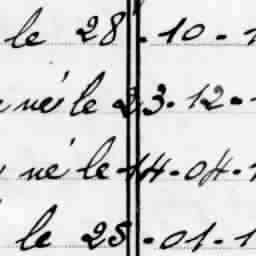 le 28.10.1
né le 23.12.
né le 14.04.1
le 28.01.1